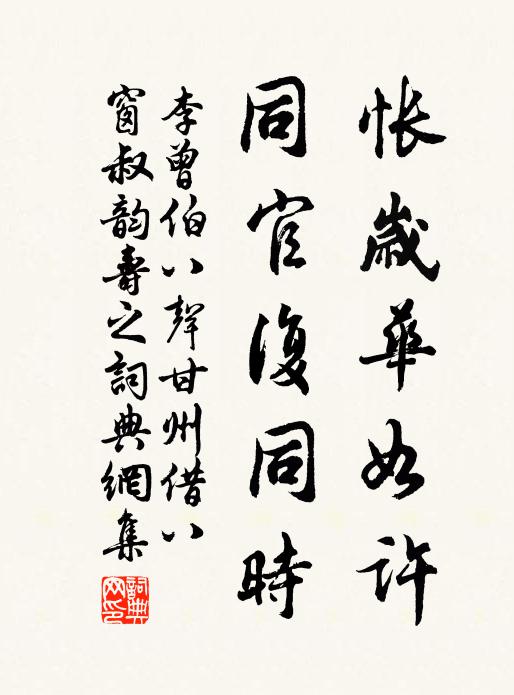 悵歲華如許
同官復同時
李曾伯八聲甘州借八
窗叔韵壽之詞典網集
詞典
网印